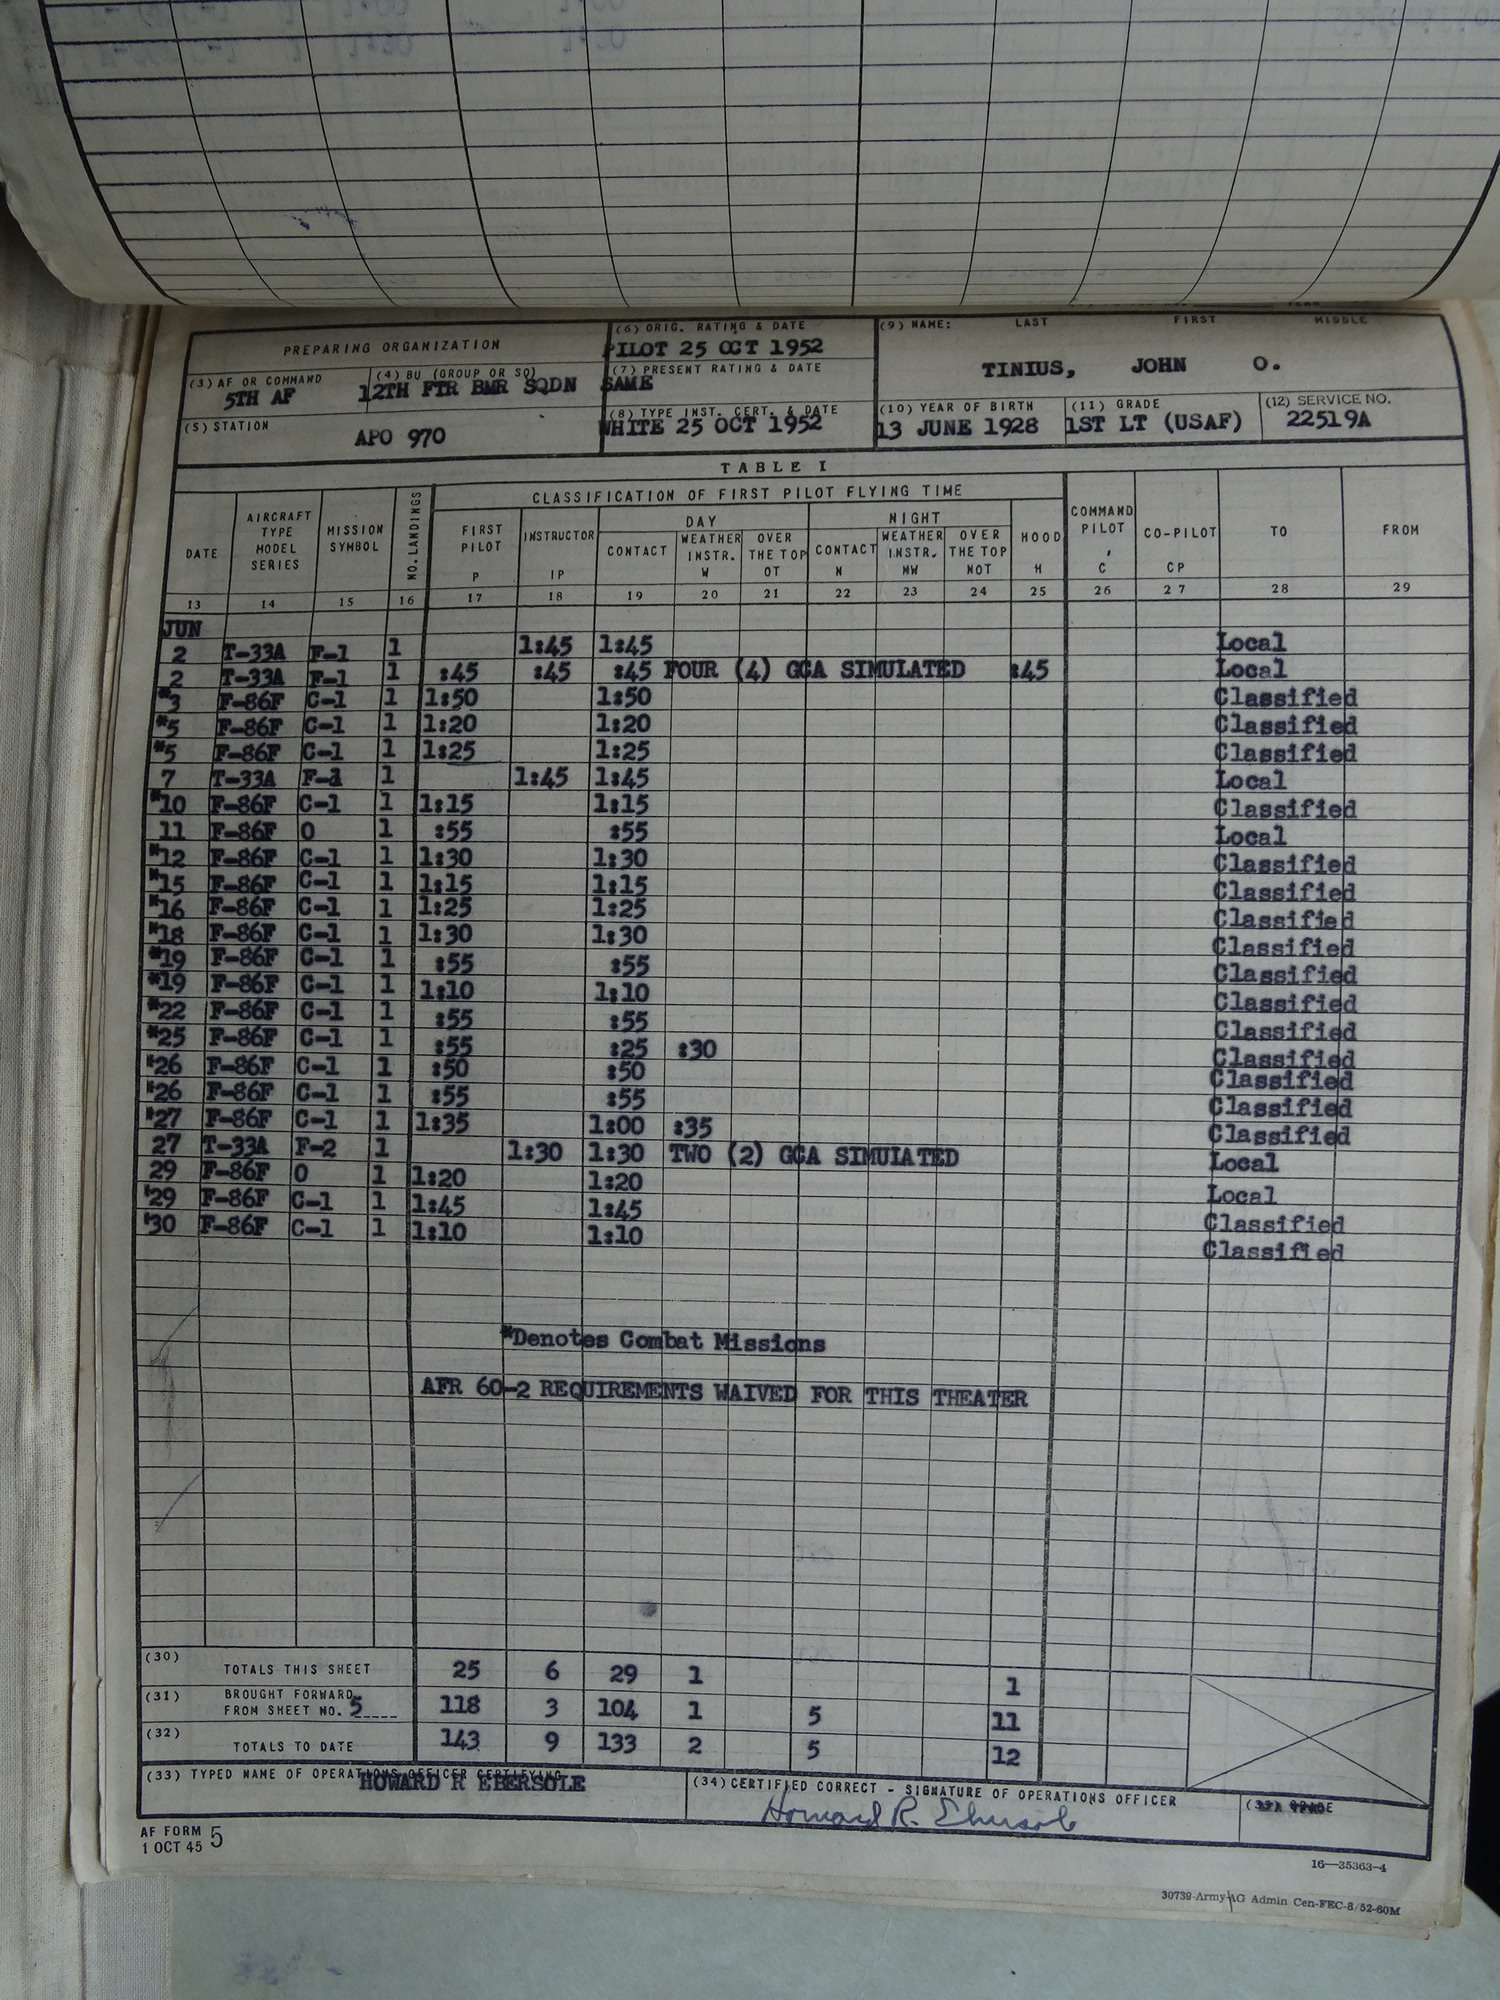 PREPARING ORGANIZATION
(3) AF OR COMMAND
5TH AF
(4) BU (GROUP OR SQ)
12TH FTR BMR SQDN
(5) STATION
APO 970
(6) ORIG. RATING & DATE
PILOT 25 OCT 1952
(7) PRESENT RATING & DATE
SAME
(8) TYPE INST. CERT. & DATE
WHITE 25 OCT 1952
(9) NAME: LAST FIRST MIDDLE
TINIUS, JOHN O.
(10) YEAR OF BIRTH
13 JUNE 1928
(11) GRADE
1ST LT (USAF)
(12) SERVICE NO.
22519A
TABLE I
CLASSIFICATION OF FIRST PILOT FLYING TIME
DAY NIGHT
DATE
AIRCRAFT TYPE MODEL SERIES
MISSION SYMBOL
NO. LANDINGS
FIRST PILOT P
INSTRUCTOR IP
CONTACT
WEATHER INSTR. W
OVER THE TOP OT
CONTACT N
WEATHER INSTR. NW
OVER THE TOP NOT
HOOD H
COMMAND PILOT C
CO-PILOT CP
TO
FROM
13 14 15 16 17 18 19 20 21 22 23 24 25 26 27 28 29
JUN
2 T-33A F-1 1 1:45 1:45 Local
2 T-33A F-1 1 :45 :45 :45 FOUR (4) GCA SIMULATED :45 Local
*3 F-86F C-1 1 1:50 1:50 Classified
*5 F-86F C-1 1 1:20 1:20 Classified
*5 F-86F C-1 1 1:25 1:25 Classified
7 T-33A 1 1:45 1:45 Local
*10 F-86F C-1 1 1:15 1:15 Classified
11 F-86F O 1 :55 :55 Local
*12 F-86F C-1 1 1:30 1:30 Classified
*15 F-86F C-1 1 1:15 1:15 Classified
*16 F-86F C-1 1 1:25 1:25 Classified
*18 F-86F C-1 1 1:30 1:30 Classified
*19 F-86F C-1 1 :55 :55 Classified
*19 F-86F C-1 1 1:10 1:10 Classified
*22 F-86F C-1 1 :55 :55 Classified
*25 F-86F C-1 1 :55 :25 :30 Classified
*26 F-86F C-1 1 :50 :50 Classified
*26 F-86F C-1 1 :55 :55 Classified
*27 F-86F C-1 1 1:35 1:00 :35 Classified
27 T-33A F-2 1 1:30 1:30 TWO (2) GCA SIMULATED Local
29 F-86F O 1 1:20 1:20 Local
*29 F-86F C-1 1 1:45 1:45 Classified
*30 F-86F C-1 1 1:10 1:10 Classified
*Denotes Combat Missions
AFR 60-2 REQUIREMENTS WAIVED FOR THIS THEATER
(30) TOTALS THIS SHEET 25 6 29 1 1
(31) BROUGHT FORWARD FROM SHEET NO. 5 118 3 104 1 5 11
(32) TOTALS TO DATE 143 9 133 2 5 12
(33) TYPED NAME OF OPERATIONS OFFICER CERTIFYING
HOWARD R EBERSOLE
(34) CERTIFIED CORRECT - SIGNATURE OF OPERATIONS OFFICER
Howard R. Ebersole
AF FORM 5
1 OCT 45
16—35363-4
30739-Army-AG Admin Cen-FEC-8/52-60M